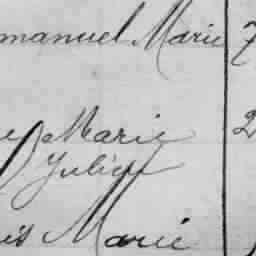 manuel Marie 7
Marie 2
Julien
is Marie